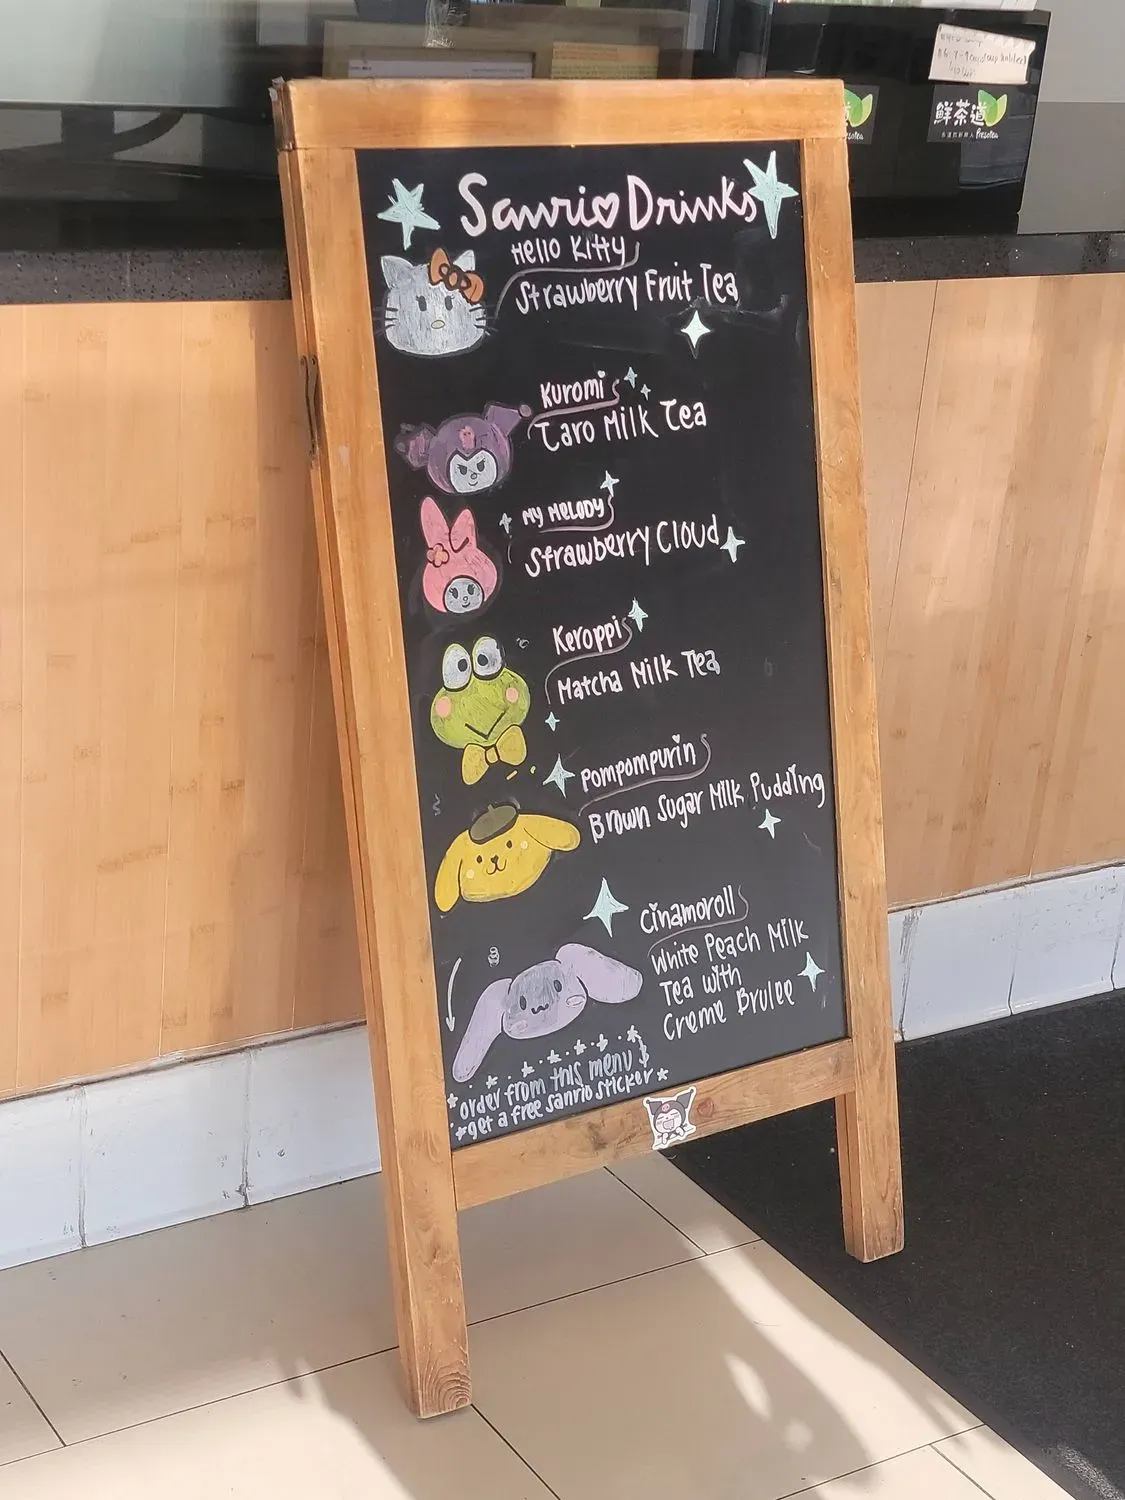 Sanrio Drinks
Hello Kitty
Strawberry Fruit Tea
Kuromi
Taro Milk Tea
My Melody
Strawberry Cloud
Keroppi
Matcha Milk Tea
Pompompurin
Brown Sugar Milk Pudding
Cinamoroll
White Peach Milk
Tea with
Creme Brulee
*order from this menu &
*get a free sanrio sticker*
鮮茶道
Presotea